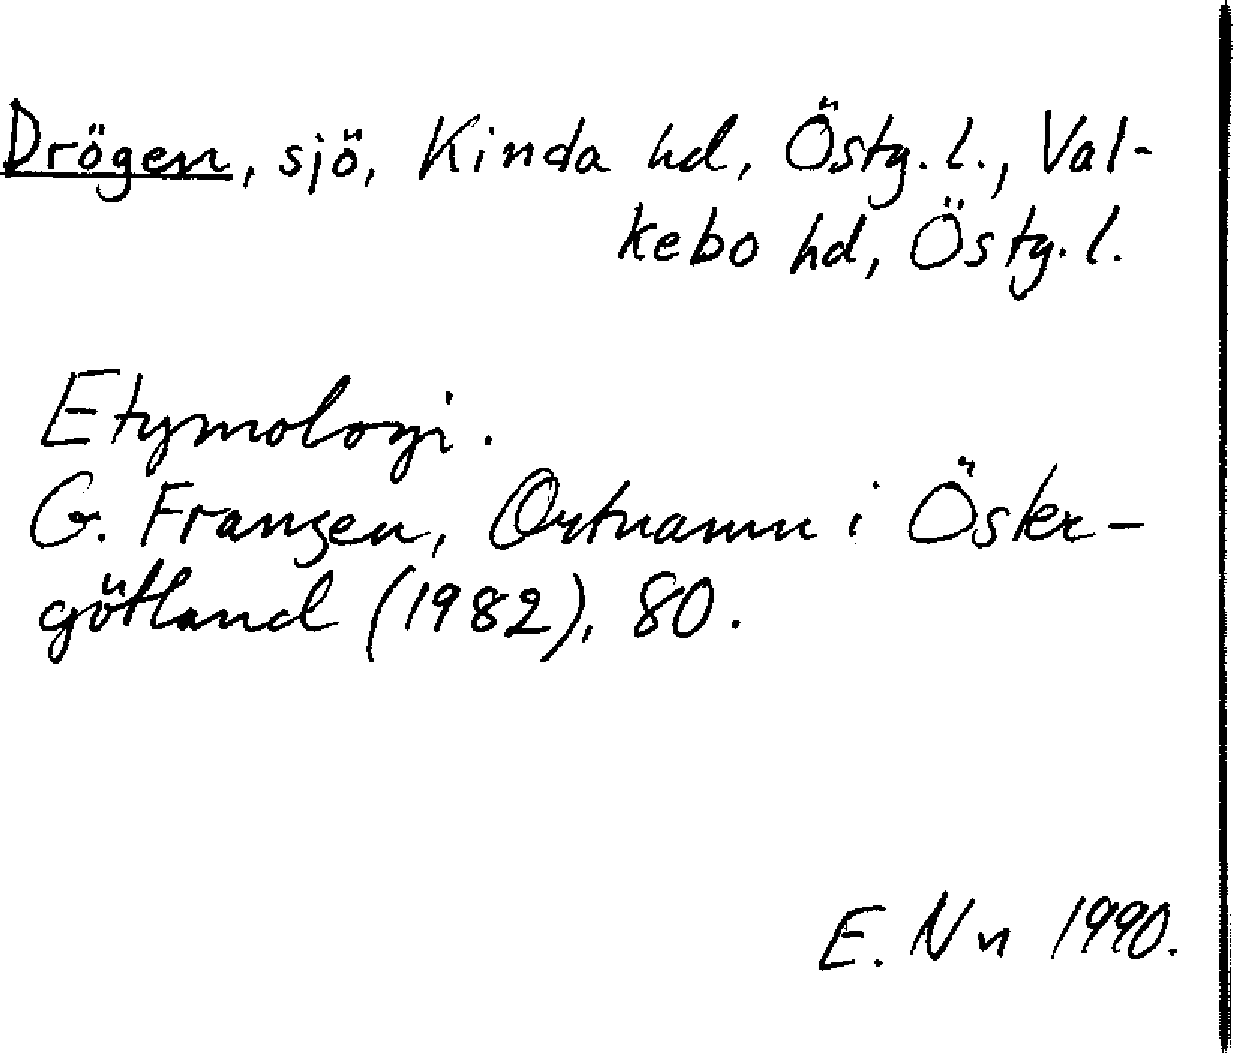 Drögen, sjö, Kinda hd, Östg. l., Val-
kebo hd, Östg. l.
Etymologi.
G. Franzen, Ortnamn i Öster-
götland (1982), 80.
E. Nn 1990.